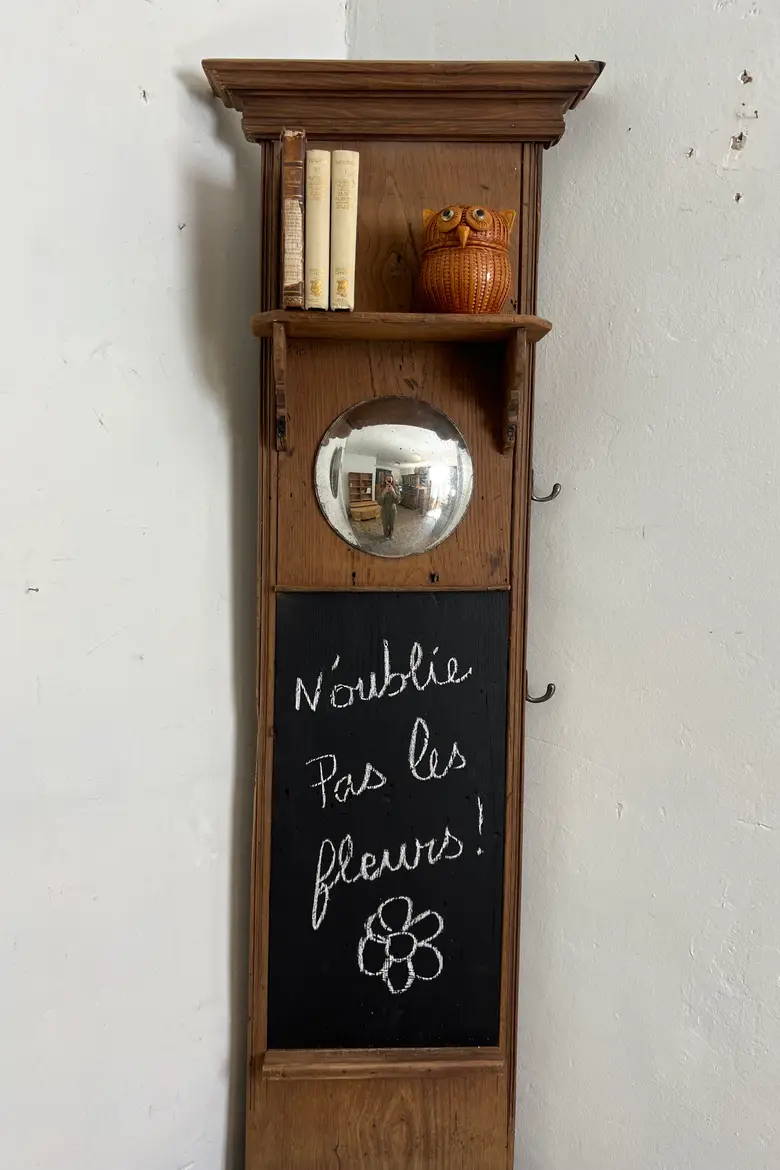 N'oublie
Pas les
fleurs!